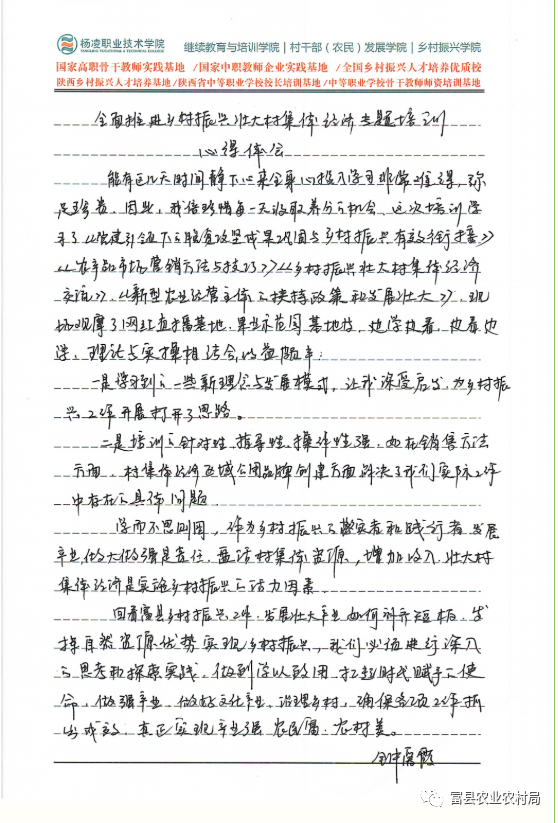 杨凌职业技术学院 继续教育与培训学院|村干部(农民)发展学院|乡村振兴学院
国家高职骨干教师实践基地 /国家中职教师企业实践基地 /全国乡村振兴人才培养优质校
陕西乡村振兴人才培养基地/陕西省中等职业学校校长培训基地/中等职业学校骨干教师师资培训基地
全面推进乡村振兴壮大村集体经济专题培训
心得体会
能有这几天时间静下心来全身心投入学习非常难得,弥
足珍贵。因此,我倍珍惜每一天汲取养分的机会。这次培训学
习了《党建引领下的脱贫攻坚成果巩固与乡村振兴有效衔接》
《农产品市场营销方法与技巧》《乡村振兴壮大村集体经济
交流》、《新型农业经营主体的扶持政策和发展壮大》,现
场观摩了网红直播基地、果业示范园基地,边学边看,边看边
学,理论与实操相结合,收益颇丰:
一是学习到了一些新理念与发展模式,让我深受启发,为乡村振
兴工作开展打开了思路。
二是培训的针对性、指导性、操作性强,如在销售方法
方面、村集体经济区域公用品牌创建方面解决了我们实际工作
中存在的具体问题。
学而不思则罔,作为乡村振兴的实者和践行者,发展
产业,做大做强是责任,盘活村集体资源,增加收入,壮大村
集体经济是实施乡村振兴的动力因素。
回看富县乡村振兴工作,发展壮大产业如何补齐短板,发
挥自然资源优势实现乡村振兴,我们必须进行深入
的思考和探索实践,做到学以致用,扛起时代赋予的使
命,做强产业,做好文化产业,治理乡村,确保各项工作抓
出成效,真正实现产业强、农民富、农村美。
富县农业农村局